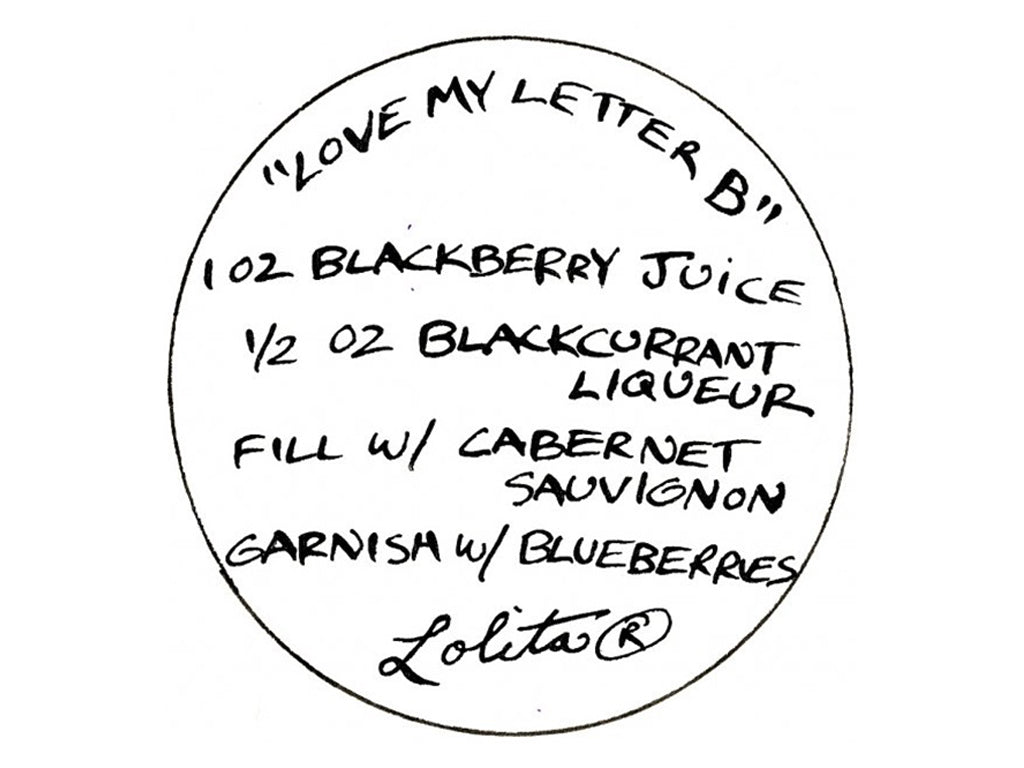 "LOVE MY LETTER B"
1 OZ BLACKBERRY JUICE
1/2 OZ BLACKCURRANT
LIQUEUR
FILL W/ CABERNET
SAUVIGNON
GARNISH W/ BLUEBERRIES
Lolita®